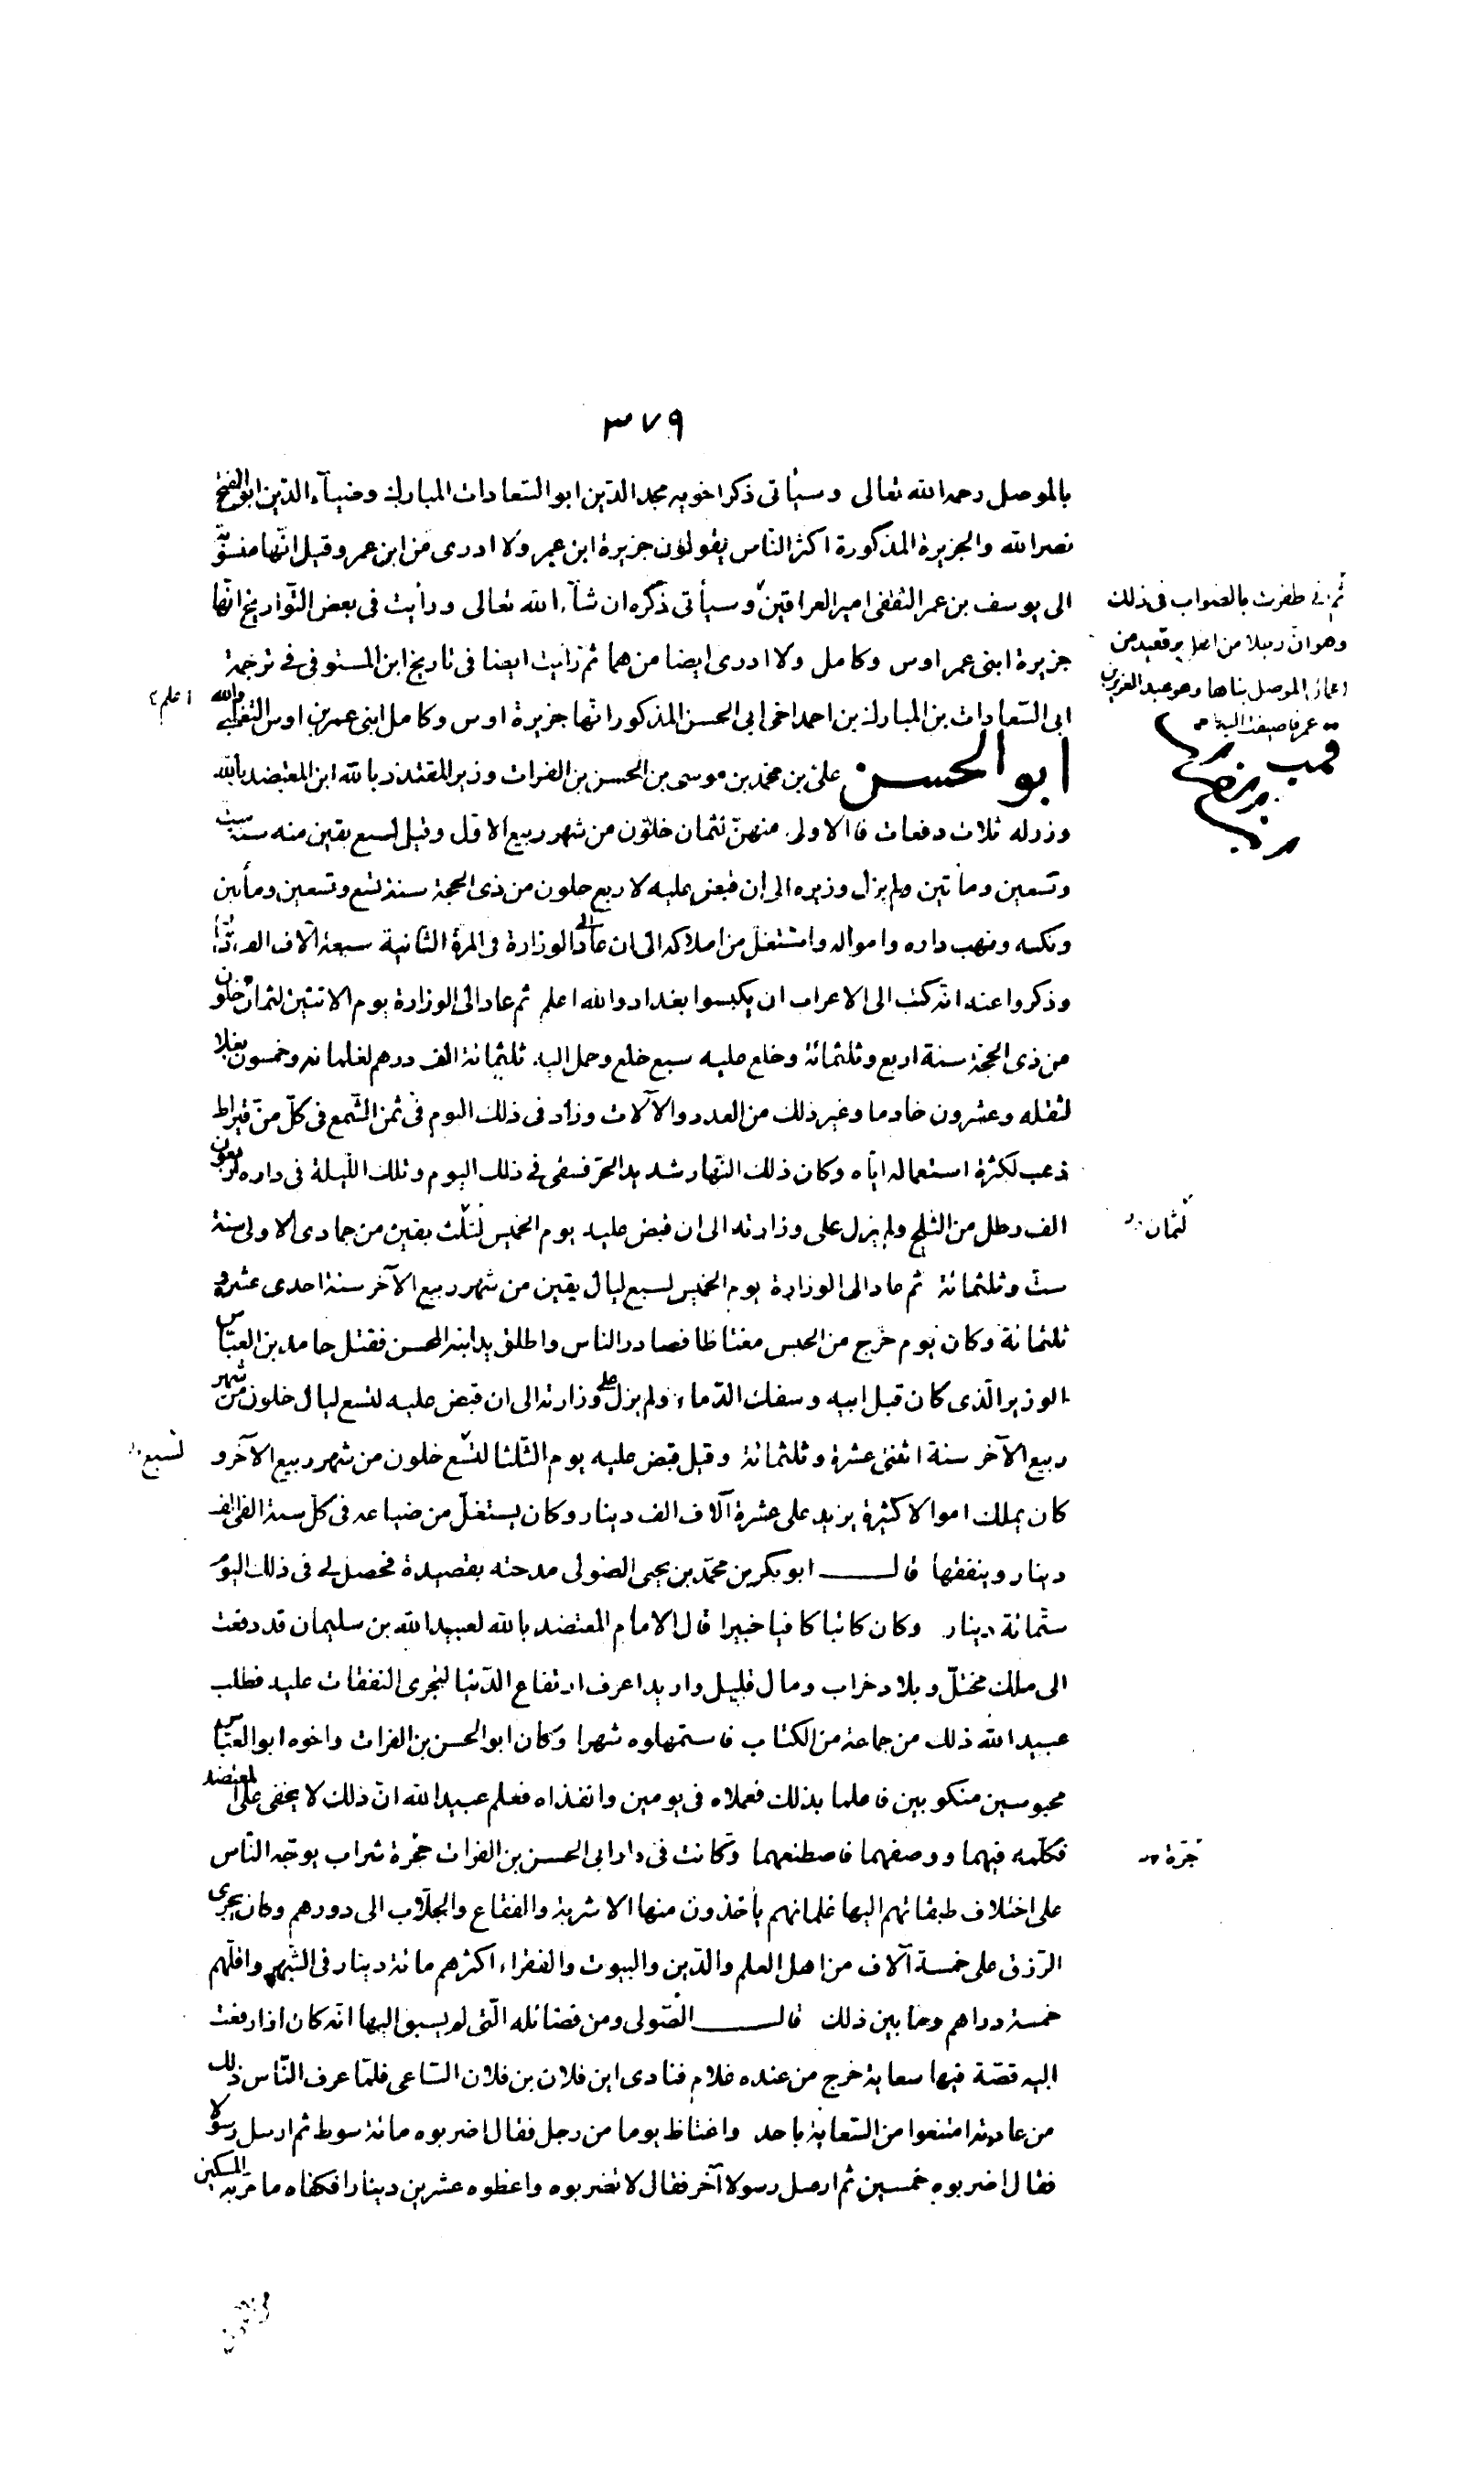 ٣٧٩
بالموصل رحمه الله تعالى وسيأتى ذكر اخويه مجد الدين ابو السعادات المبارك وضيآء الدين ابو الفتح
نصر الله والجزيرة المذكورة اكثر الناس يقولون جزيرة ابن عمر ولا ادرى من ابن عمر وقيل انها منسوبة
الى يوسف بن عمر الثقفى امير العراقين وسيأتى ذكره ان شآء الله تعالى ورأيت فى بعض التواريخ انها
جزيرة ابنى عمر اوس وكامل ولا ادرى ايضا من هما ثم رأيت ايضا فى تاريخ ابن المستوفى فى ترجمة
ابى السعادات بن المبارك بن احمد اخى ابى الحسن المذكور انها جزيرة اوس وكامل ابنى عمر بن اوس التغلبى والله
اعلم
ثم ظفرت بالصواب فى ذلك
وهو ان رجلا من اهل برقعيد من
اعمال الموصل بناها وهو عبد العزيز بن
عمر فاضيفت اليه
ابو الحسن على بن محمد بن موسى بن الحسن بن الفرات وزير المقتدر بالله ابن المعتضد بالله
وزر له ثلاث دفعات فالاولى منهن لثمان خلون من شهر ربيع الاول وقيل لسبع بقين منه سنة ست
وتسعين ومأتين ولم يزل وزيره الى ان قبض عليه لاربع خلون من ذى الحجة سنة تسع وتسعين ومأتين
ونكبه ونهب داره وامواله واستغل من املاكه الى ان عاد الى الوزارة فى المرة الثانية سبعة آلاف الف
وذكروا عنه انه كتب الى الاعراب ان يكبسوا بغداد والله اعلم ثم عاد الى الوزارة يوم الاثنين لثمان خلون
من ذى الحجة سنة اربع وثلثمائة وخلع عليه سبع خلع وحمل اليه ثلثمائة الف درهم لغلمانه وخمسون بغلا
لثقله وعشرون خادما وغير ذلك من العدد والآلات وزاد فى ذلك اليوم فى ثمن الشمع فى كل من قيراط
ذهب لكثرة استعماله اياه وكان ذلك النهار شديد الحر فسقى فى ذلك اليوم وتلك الليلة فى داره اربعون
الف رطل من الثلج ولم يزل على وزارته الى ان قبض عليه يوم الخميس لثلث بقين من جمادى الاولى سنة
لثمان
ست وثلثمائة ثم عاد الى الوزارة يوم الخميس لسبع ليال بقين من شهر ربيع الآخر سنة احدى عشرة و
ثلثمائة وكان يوم خرج من الحبس مغتاظا فصادر الناس واطلق يد ابنه المحسن فقتل حامد بن العباس
الوزير الذى كان قبل ابيه وسفك الدماء ولم يزل على وزارته الى ان قبض عليه لتسع ليال خلون من شهر
ربيع الآخر سنة اثنتى عشرة وثلثمائة وقيل قبض عليه يوم الثلثا لتسع خلون من شهر ربيع الآخر و
لسبع
كان يملك اموالا كثيرة يزيد على عشرة آلاف الف دينار وكان يستغل من ضياعه فى كل سنة الفى الف
دينار وينفقها قال ابو بكر بن محمد بن يحيى الصولى مدحته بقصيدة فحصل لى فى ذلك اليوم
ستمائة دينار وكان كاتبا كافيا خبيرا قال الامام المعتضد بالله لعبيد الله بن سليمان قد دفعت
الى ملك مختل وبلاد خراب ومال قليل واريد اعرف ارتفاع الدنيا لتجرى النفقات عليه فطلب
عبيد الله ذلك من جماعة من الكتاب فاستمهلوه شهرا وكان ابو الحسن بن الفرات واخوه ابو العباس
محبوسين منكوبين فاعلما بذلك فعملاه فى يومين وانفذاه فعلم عبيد الله ان ذلك لا يخفى على المعتضد
فكلمه فيهما ووصفهما فاصطنعهما وكانت فى دار ابى الحسن بن الفرات حجرة شراب يوجه الناس
على اختلاف طبقاتهم اليها غلمانهم يأخذون منها الاشربة والفقاع والجلاب الى دورهم وكان يجرى
الرزق على خمسة آلاف من اهل العلم والدين والبيوت والفقراء اكثرهم مائة دينار فى الشهر واقلهم
خمسة دراهم وما بين ذلك قال الصولى ومن فضائله التى لم يسبق اليها انه كان اذا رفعت
اليه قصة فيها سعاية خرج من عنده غلام فنادى اين فلان بن فلان الساعى فلما عرف الناس ذلك
من عادته امتنعوا من السعاية باحد واغتاظ يوما من رجل فقال اضربوه مائة سوط ثم ارسل رسولا
فقال اضربوه خمسين ثم ارسل رسولا آخر فقال لا تضربوه واعطوه عشرين دينارا فكفاه ما مر به المسكين